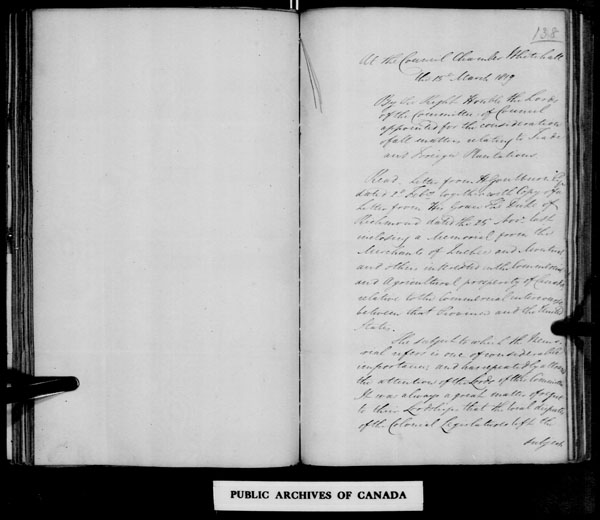 138
At the Council Chamber Whitehall
the 15th March 1819
By the Right Honble the Lords
of the Committee of Council
appointed for the consideration
of all matters relating to Trade
and Foreign Plantations
Read. Letter from H Goulburn Esq
dated 2d Feby together with Copy of a
Letter from His Grace The Duke of
Richmond dated the 25 Novr last
inclosing a Memorial from the
Merchants of Quebec and Montreal
and others interested in the Commercial
and Agricultural prosperity of Canada
relative to the Commercial intercourse
between that Province and the United
States.
The subject to which the Memo-
rial refers is one of considerable
importance, and has repeatedly
the attention of the Lords of this Committee
It was always a great matter of regret
to their Lordships that the local
of the Colonial Legislatures left the
subject
PUBLIC ARCHIVES OF CANADA